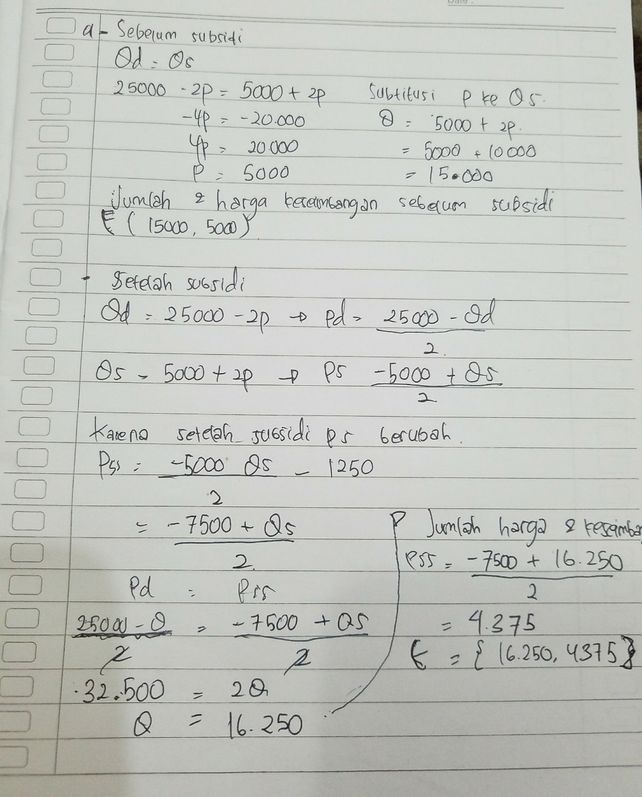 a - Sebelum subsidi
Qd = Qs
25000 - 2p = 5000 + 2p
-4p = -20.000
4p = 20.000
P = 5000
Subtitusi P ke Qs.
Q = 5000 + 2p.
= 5000 + 10000
= 15.000
Jumlah & harga keseimbangan sebelum subsidi
E (15000, 5000)
- Setelah subsidi
Qd = 25000 - 2p → Pd = 25000 - Qd / 2
Qs = 5000 + 2p → Ps -5000 + Qs / 2
Karena setelah subsidi Ps berubah.
Pss = -5000 Qs / 2 - 1250
= -7500 + Qs / 2
Pd = Pss
25000 - Q / 2 = -7500 + QS / 2
32.500 = 2Q
Q = 16.250
Jumlah harga & keseimba
Pss = -7500 + 16.250 / 2
= 4.375
E = {16.250, 4375}